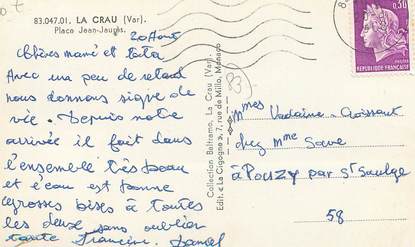 83.047.01. LA CRAU (Var).
Place Jean-Jaurès.
20 Août
Chères mamé et tata
Avec un peu de retard
nous donnons signe de
vie. Depuis notre
arrivée il fait dans
l'ensemble très beau
et l'eau est bonne
grosses bises à toutes
les deux sans oublier
tante Francine. Daniel
Collection Beltramo, La Crau (Var).
Edit. « La Cigogne », 7, rue de Millo, Monaco
83
0,30
RÉPUBLIQUE FRANÇAISE
Mmes
chez Mme
à POUZY par St Saulge
58